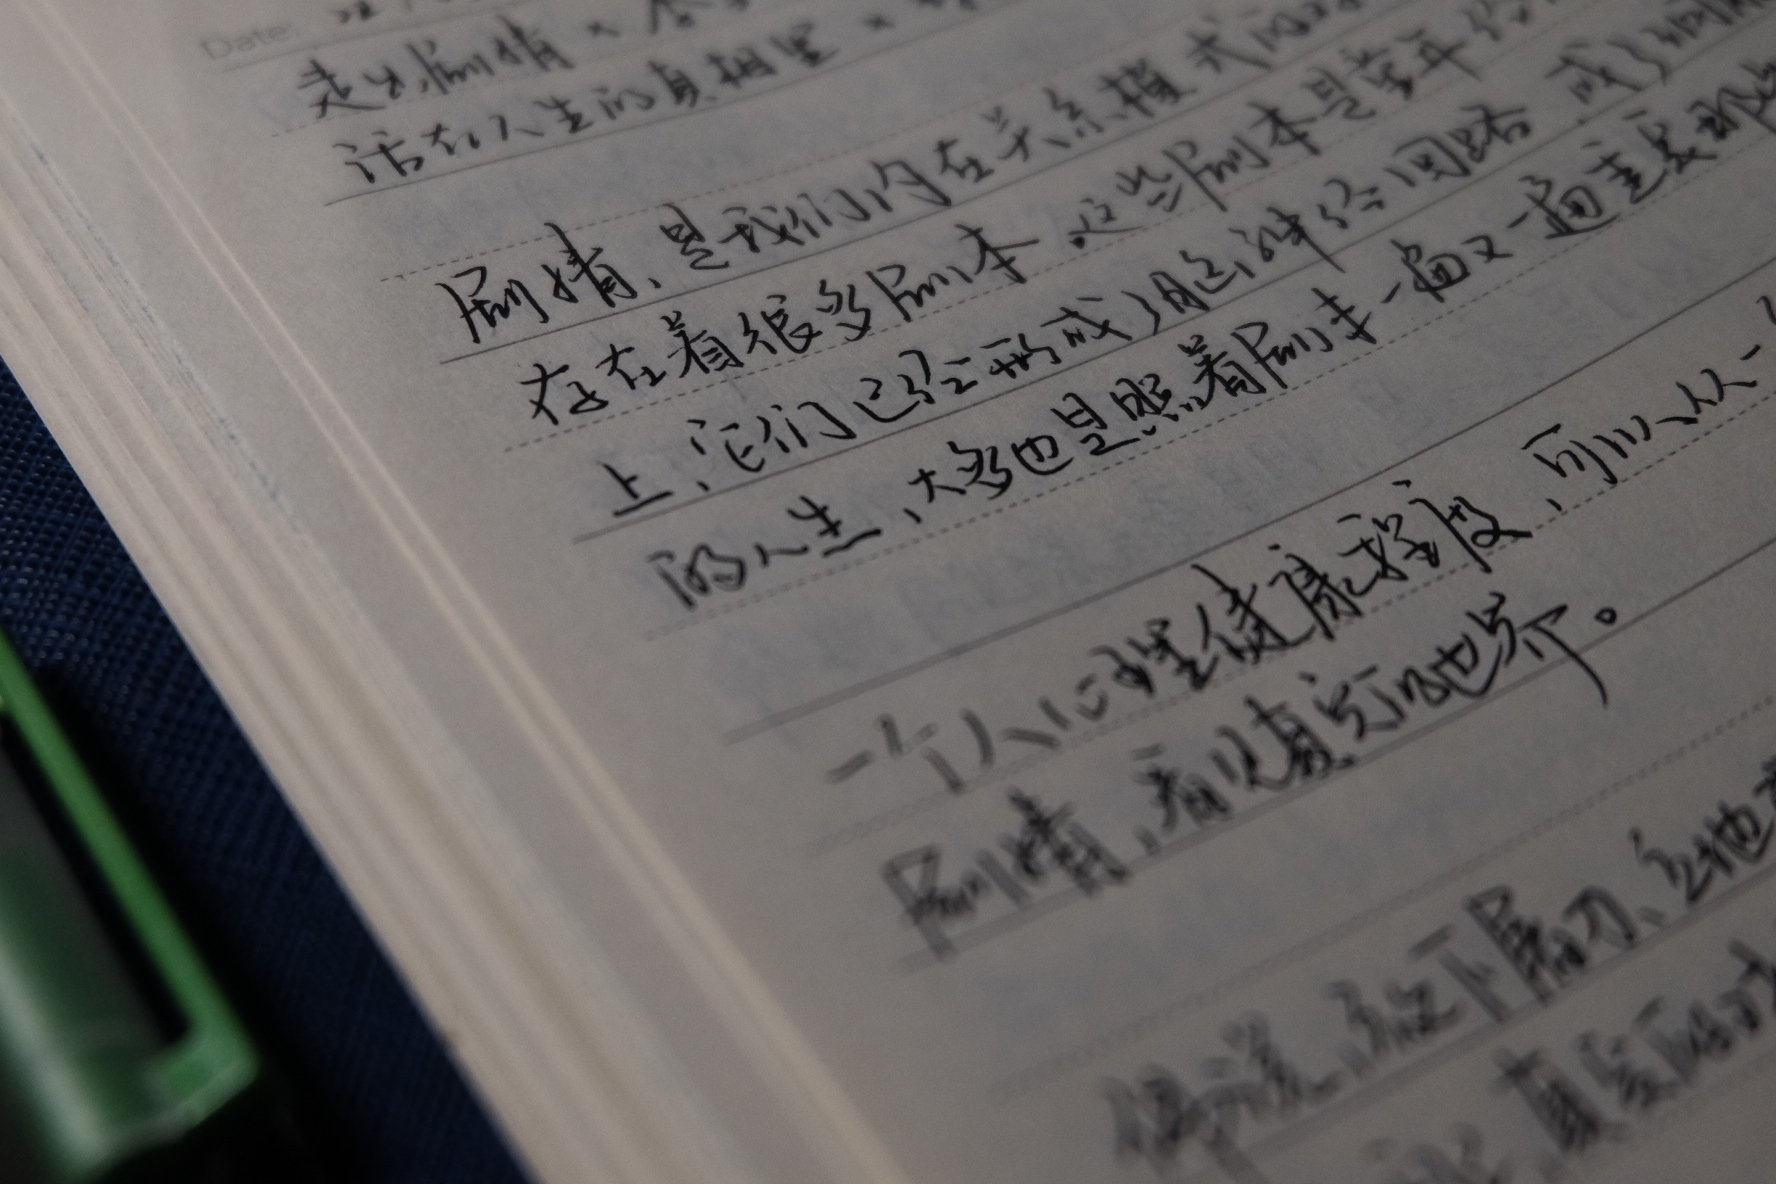 Date:
走出剧情,
活在人生的真相里,
剧情,是我们内在关系模式的
存在着很多剧本.这些剧本是常年经
上,它们已经形成了脑神经回路.成了
的人生,大多也是照着剧本一遍又一遍重复那
一个人心理健康程度,可以从一
剧情,看见真实的世界。
佛说,放下屠刀、立地
真实的